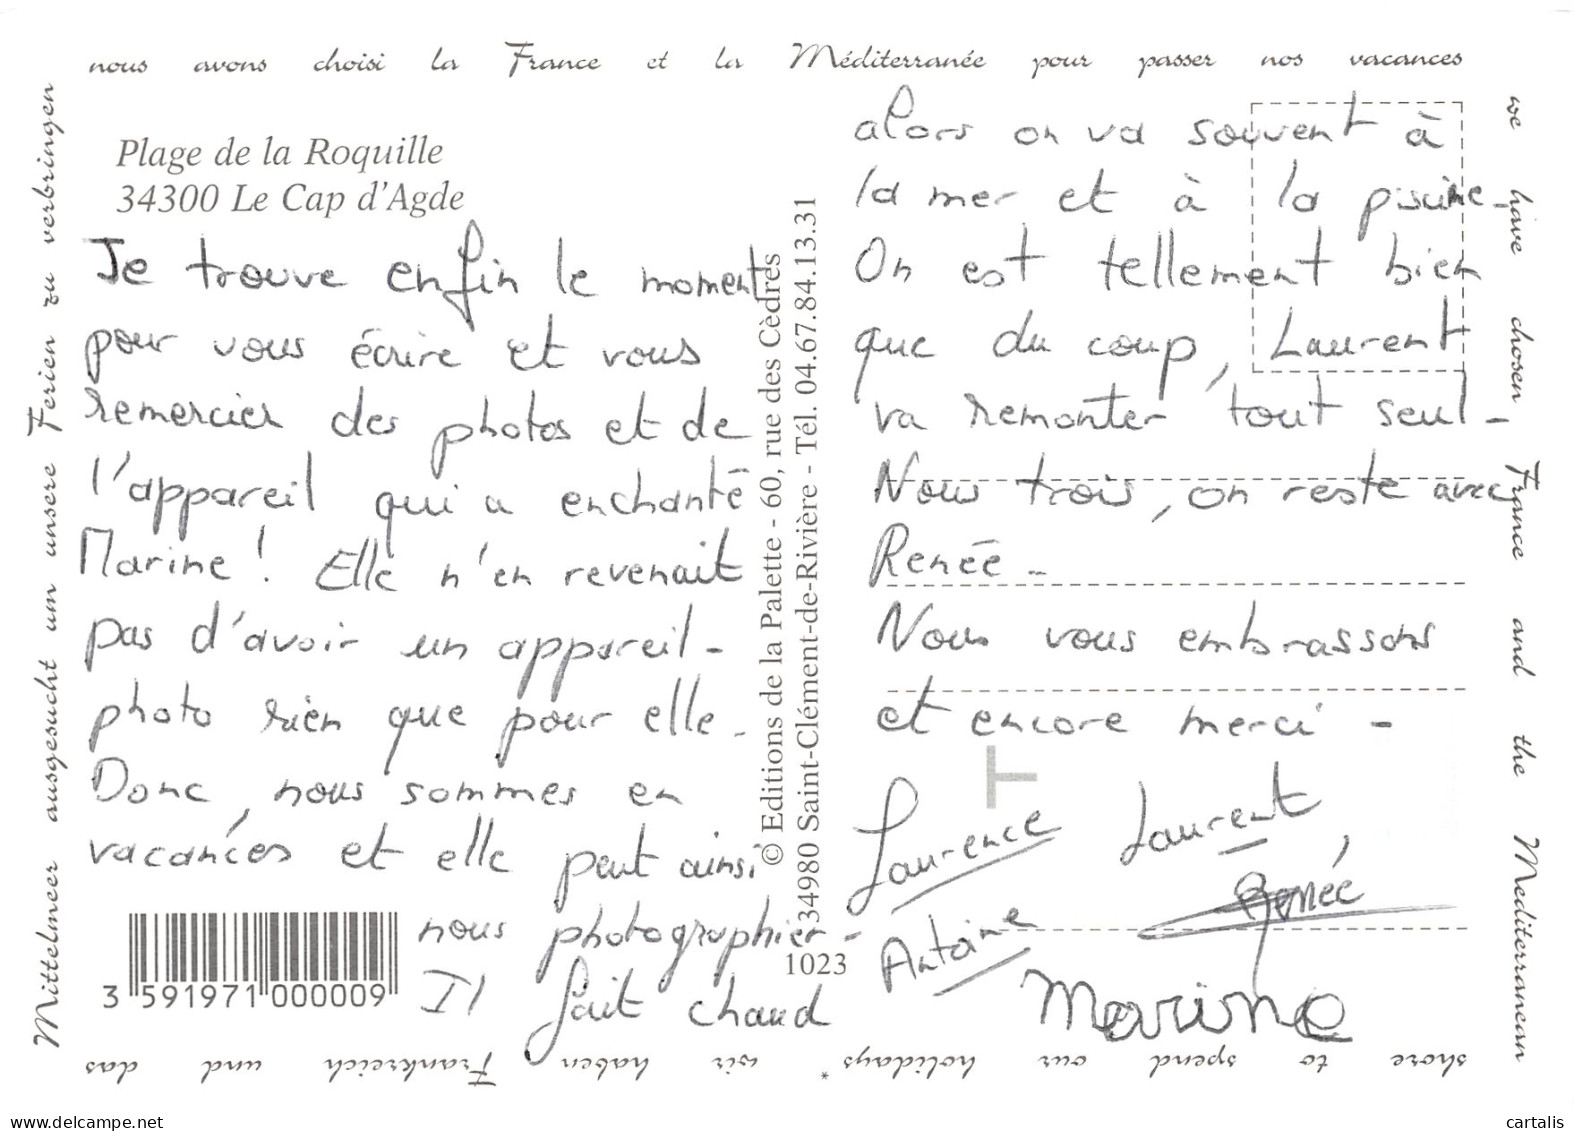 nous avons choisi la France et la Méditerranée pour passer nos vacances
we have chosen France and the Mediterranean
shore to spend our holidays *
wir haben Frankreich und das
Mittelmeer ausgesucht um unsere Ferien zu verbringen
Plage de la Roquille
34300 Le Cap d'Agde
Je trouve enfin le moment
pour vous écrire et vous
remercier des photos et de
l'appareil qui a enchanté
Marine ! Elle n'en revenait
pas d'avoir un appareil-
photo rien que pour elle.
Donc, nous sommes en
vacances et elle peut ainsi
nous photographier-
Il fait chaud
3 591971 000009
© Editions de la Palette - 60, rue des Cèdres
34980 Saint-Clément-de-Rivière - Tél. 04.67.84.13.31
1023
alors on va souvent à
la mer et à la piscine-
On est tellement bien
que du coup, Laurent
va remonter tout seul-
Nous trois, on reste avec
Renée-
Nous vous embrassons
et encore merci -
T
Laurence Laurent,
Renée
Antoine
Marine
delcampe.net
cartalis